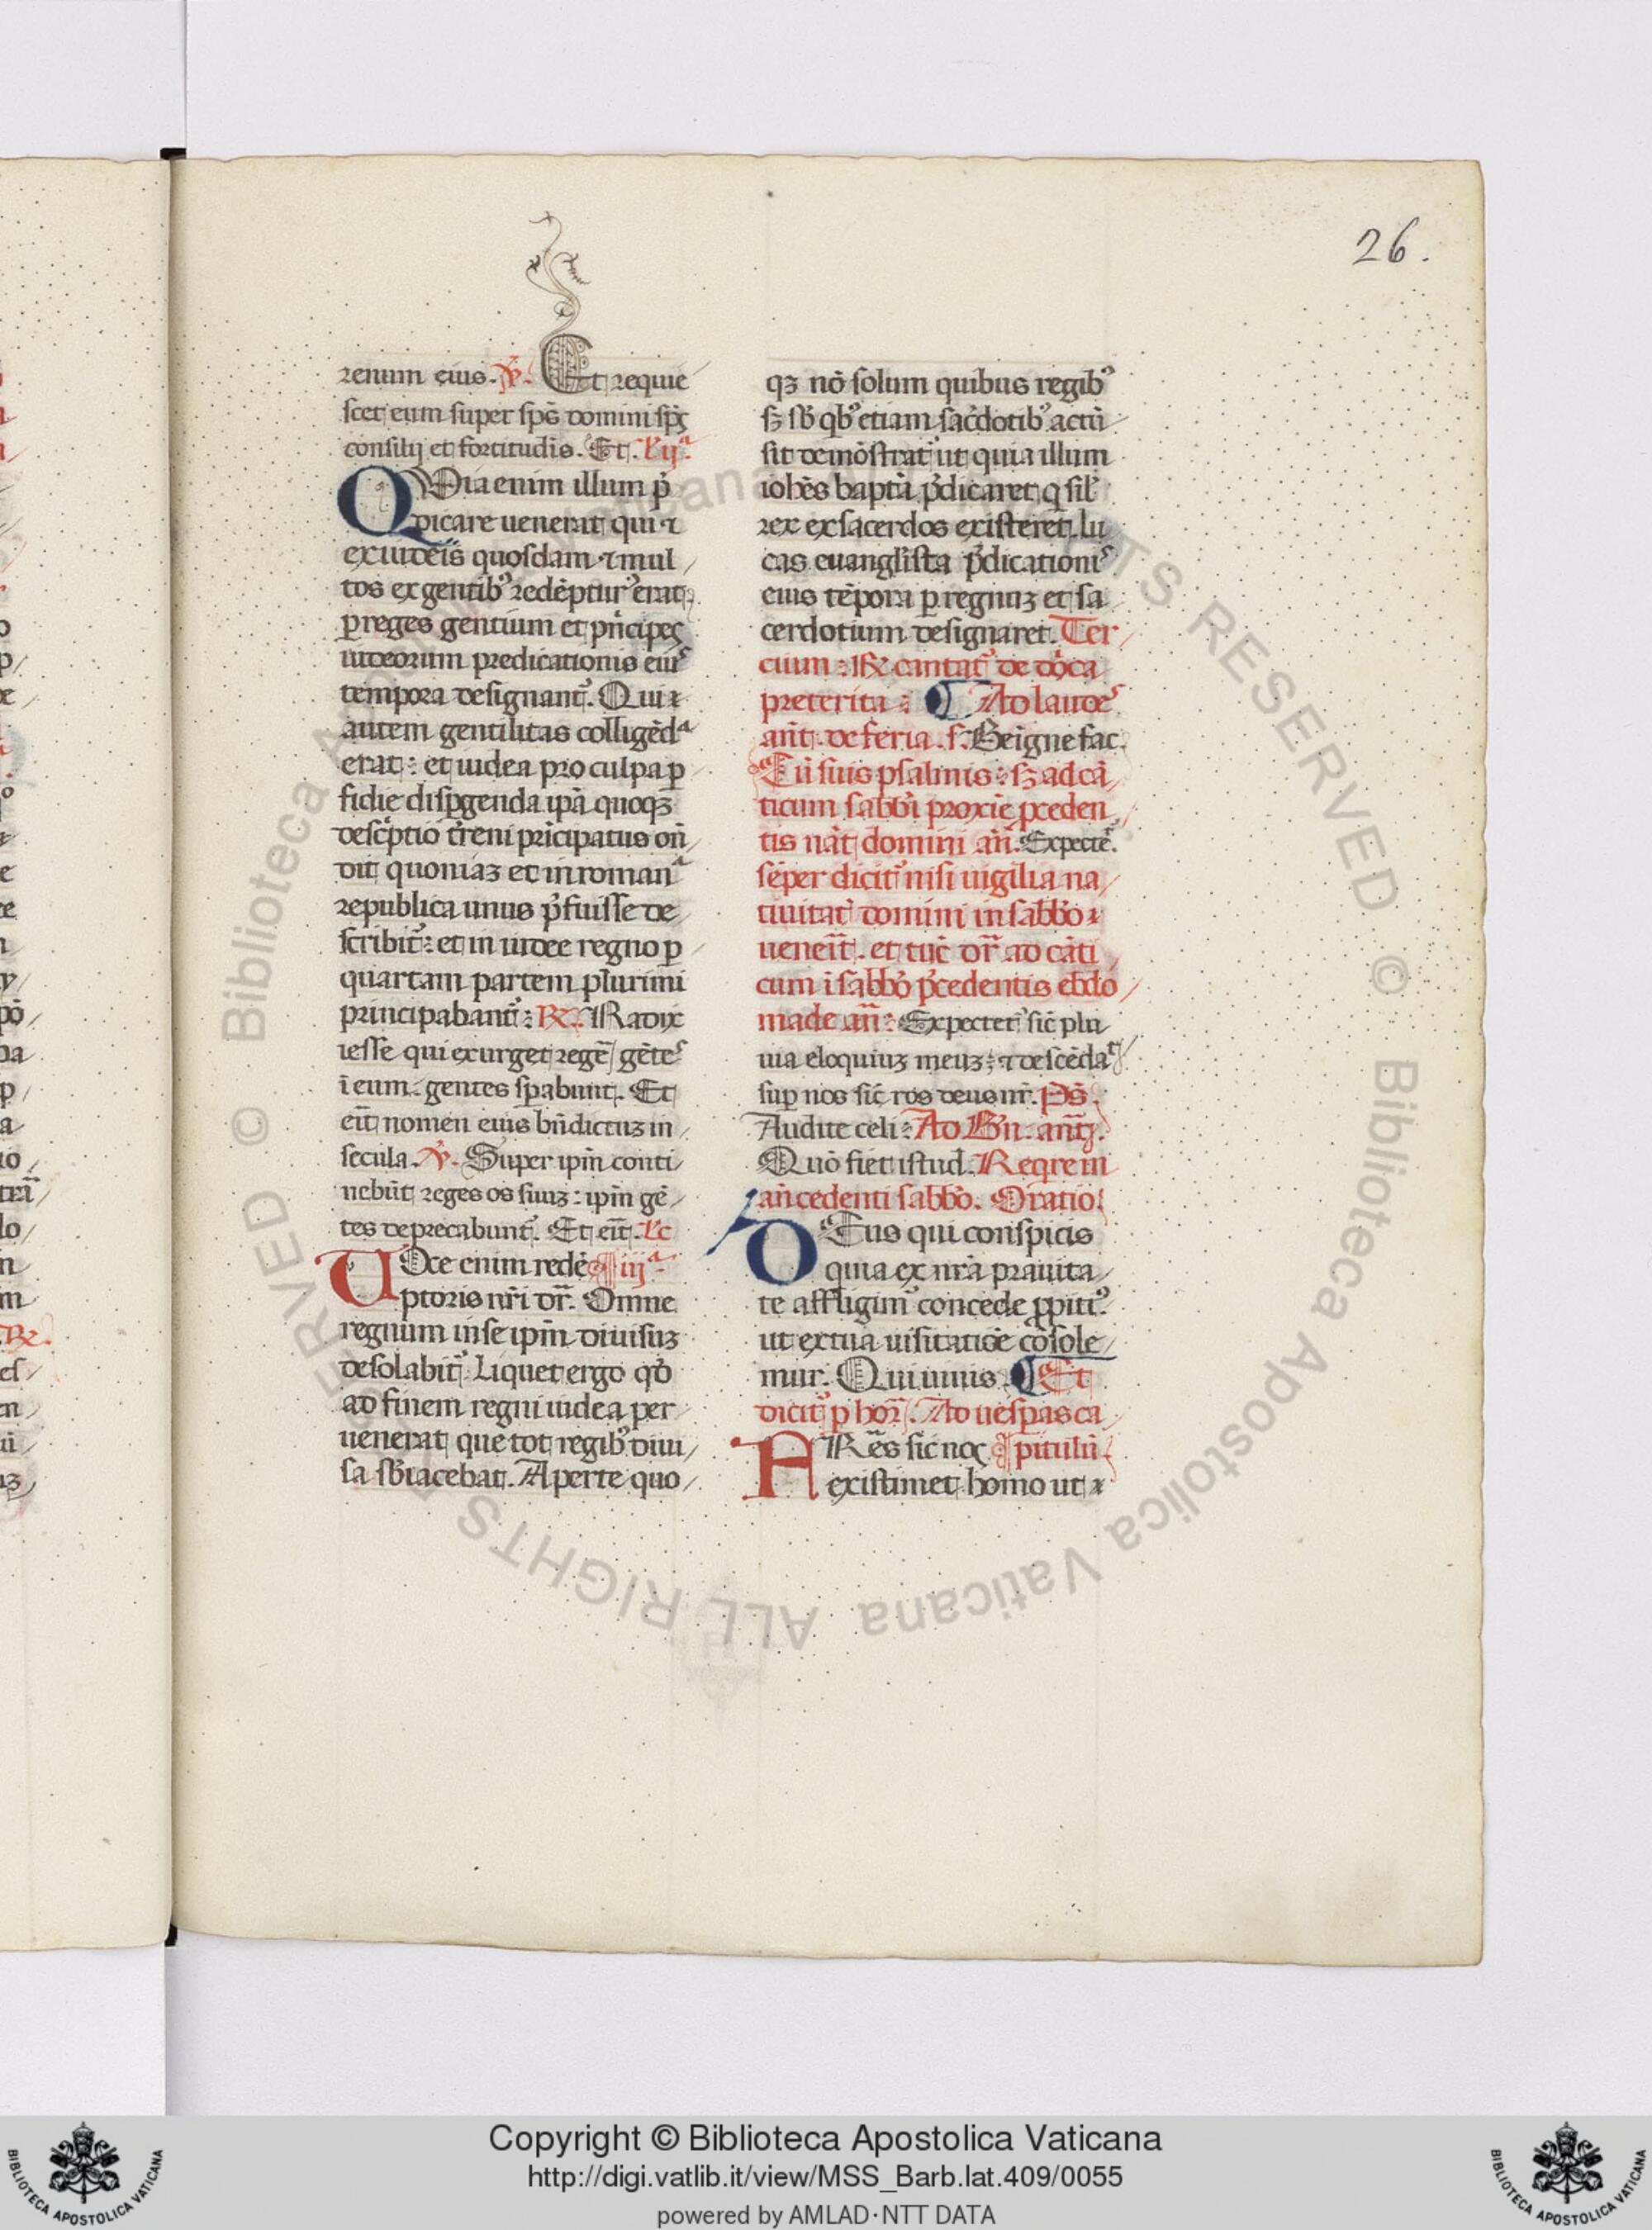 26.
renum eius. ℣. Et requie
scet eum super sp̄s domini sp̄s
consilij et fortitudis. Et. l'ij.ª
QUia enim illum p̄
dicare uenerat qui ⁊
ex iudeis quosdam ⁊ mul
tos ex gentibꝰ redēpturꝰ erat
ꝑ reges gentium et pͥncipes
iudeorum predicationis eiuˢ
tempora designantᷣ. Quia
autem gentilitas colligēdª
erat: et iudea pro culpa ꝑ
fidie disꝑgenda ipā quoqꝫ
descͥptio t̄reni pͥncipatus on̄
dit quoniaꝫ et in romanª
republica unus p̄fuisse de
scribitᷣ: et in iudee regno ꝑ
quartam partem plurimi
principabantᷣ: ℟. Radix
iesse qui exurget regē gēteˢ
ī eum gentes sꝑabunt. Et
eit̄ nomen eius bn̄dictuꝫ in
secula. ℣. Super ipm̄ conti
nebūt reges os suuꝫ: ipm̄ gē
tes deprecabuntᷣ. Et eit̄. l'c
UOce enim redē ¶ iijª.
ptoris nr̄i dr̄. Omne
regnum in se ipm̄ diuisuꝫ
desolabitᷣ. Liquet ergo qd̄
ad finem regni iudea per
uenerat que tot regibꝰ diui
sa sb̄iacebat. Aperte quo
qꝫ nō solum quibus regibꝰ
sꝫ sb̄ qͥbꝰ etiam sac̄dotibꝰ actū
sit demōstratᷣ ut quia illum
iohēs baptā p̄dicaret q̄ sil'
rex ex sacerdos existeret. lu
cas euanglīsta p̄dicationiˢ
eius tēpora ꝑ regnuꝫ et sa
cerdotium designaret. Ter
cium: ℟ cantatᷣ de dn̄ica
preterita: ¶ Ad laudeˢ
an̄t. de feria. s. Beigne fac.
Cū suis psalmis: sꝫ ad cā
ticum sabbi proxiē p̄ceden
tis nat̄ domini an̄. Expectē.
sēper dicitᷣ nisi uigilia na
tiuitatˢ domini in sabbō
uenei̅t. et tūc dr̄ ad cāti
cum ī sabbō p̄cedentis ebdo
made an̄: Expectetᷣ sic̄ plu
uia eloquiuꝫ meuꝫ: ⁊ descēdat
suꝑ nos sic̄ ros deus nr̄. Ps̄.
Audite celi: Ad Bn̄. ant̄.
Quō fiet istud. Reqͥre in
an̄cedenti sabbō. Oratio.
DEus qui conspicis
quia ex nr̄a prauita
te affligimᷣ concede ꝓpitiꝰ
ut ex tua uisitatiōe cōsole
mur. Qui uiuis. ¶ Et
dicitᷣ ꝑ hor̄. Ad uesꝑas ca
FRēs sic nos ¶ pitulū
existimet homo ut
Copyright © Biblioteca Apostolica Vaticana
http://digi.vatlib.it/view/MSS_Barb.lat.409/0055
powered by AMLAD·NTT DATA
BIBLIOTECA APOSTOLICA VATICANA
BIBLIOTECA APOSTOLICA VATICANA
© Biblioteca Apostolica Vaticana ALL RIGHTS RESERVED
© Biblioteca Apostolica Vaticana ALL RIGHTS RESERVED